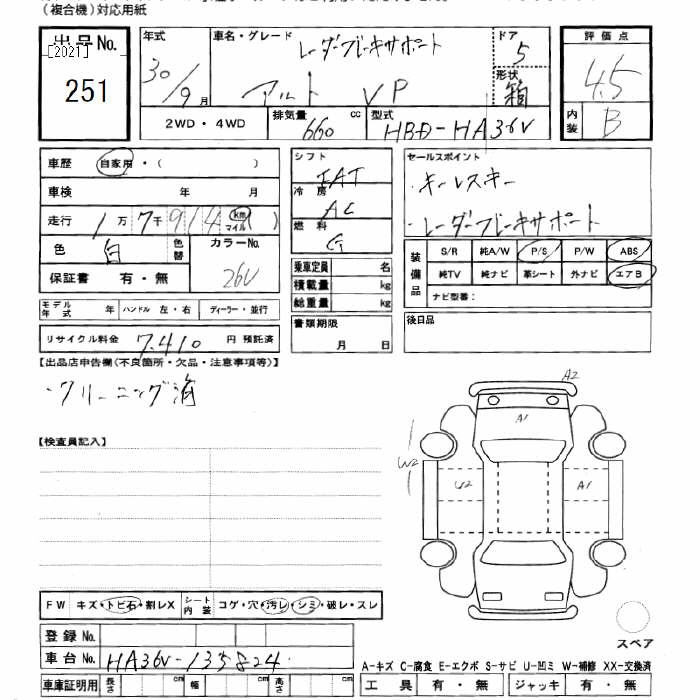 (複合機)対応用紙
出品No.
[2021]
251
年式
30/9月
車名・グレード
レーダーブレーキサポート
アルト VP
ドア
5
形状
箱
評価点
4.5
内装
B
2WD・4WD
排気量
660 cc
型式
HBD-HA36V
車歴 自家用・( )
車検 年 月
走行 1万7千914 km マイル
色 白 色替
カラーNo.
26U
保証書 有・無
シフト
IAT
冷房
AC
燃料
G
乗車定員 名
積載量 kg
総重量 kg
書類期限
月 日
セールスポイント
・キーレスキー
・レーダーブレーキサポート
装備品
S/R 純A/W P/S P/W ABS
純TV 純ナビ 革シート 外ナビ エアB
ナビ型番:
後日品
モデル年式 年 ハンドル 左・右 ディーラー・並行
リサイクル料金 7,410 円 預託済
【出品店申告欄(不良箇所・欠品・注意事項等)】
・クリーニング済
【検査員記入】
A2
A1
W2
U2
A1
FW キズ・トビ石・割レX シート内装 コゲ・穴・汚レ・シミ・破レ・スレ
登録No.
車台No. HA36V-135824
車庫証明用 長さ cm 幅 cm 高さ cm
スペア
A-キズ C-腐食 E-エクボ S-サビ U-凹ミ W-補修 XX-交換済
工具 有・無 ジャッキ 有・無